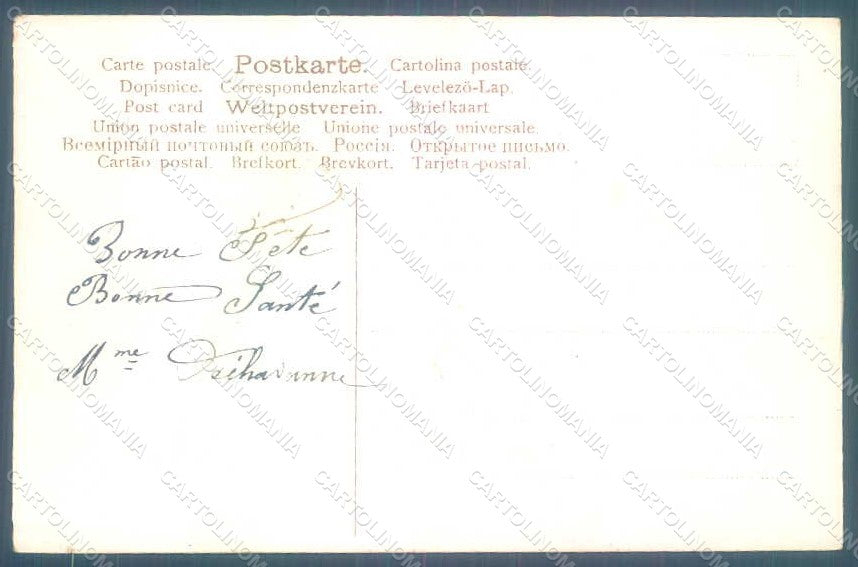 Carte postale. Postkarte. Cartolina postale.
Dopisnice. Correspondenzkarte Levelezö-Lap.
Post card Weltpostverein. Briefkaart
Union postale universelle Unione postale universale.
Всемірный почтовый союзъ. Россія. Открытое письмо.
Cartão postal. Brefkort. Brevkort. Tarjeta postal.
Bonne Fête
Bonne Santé
Mme
CARTOLINOMANIA